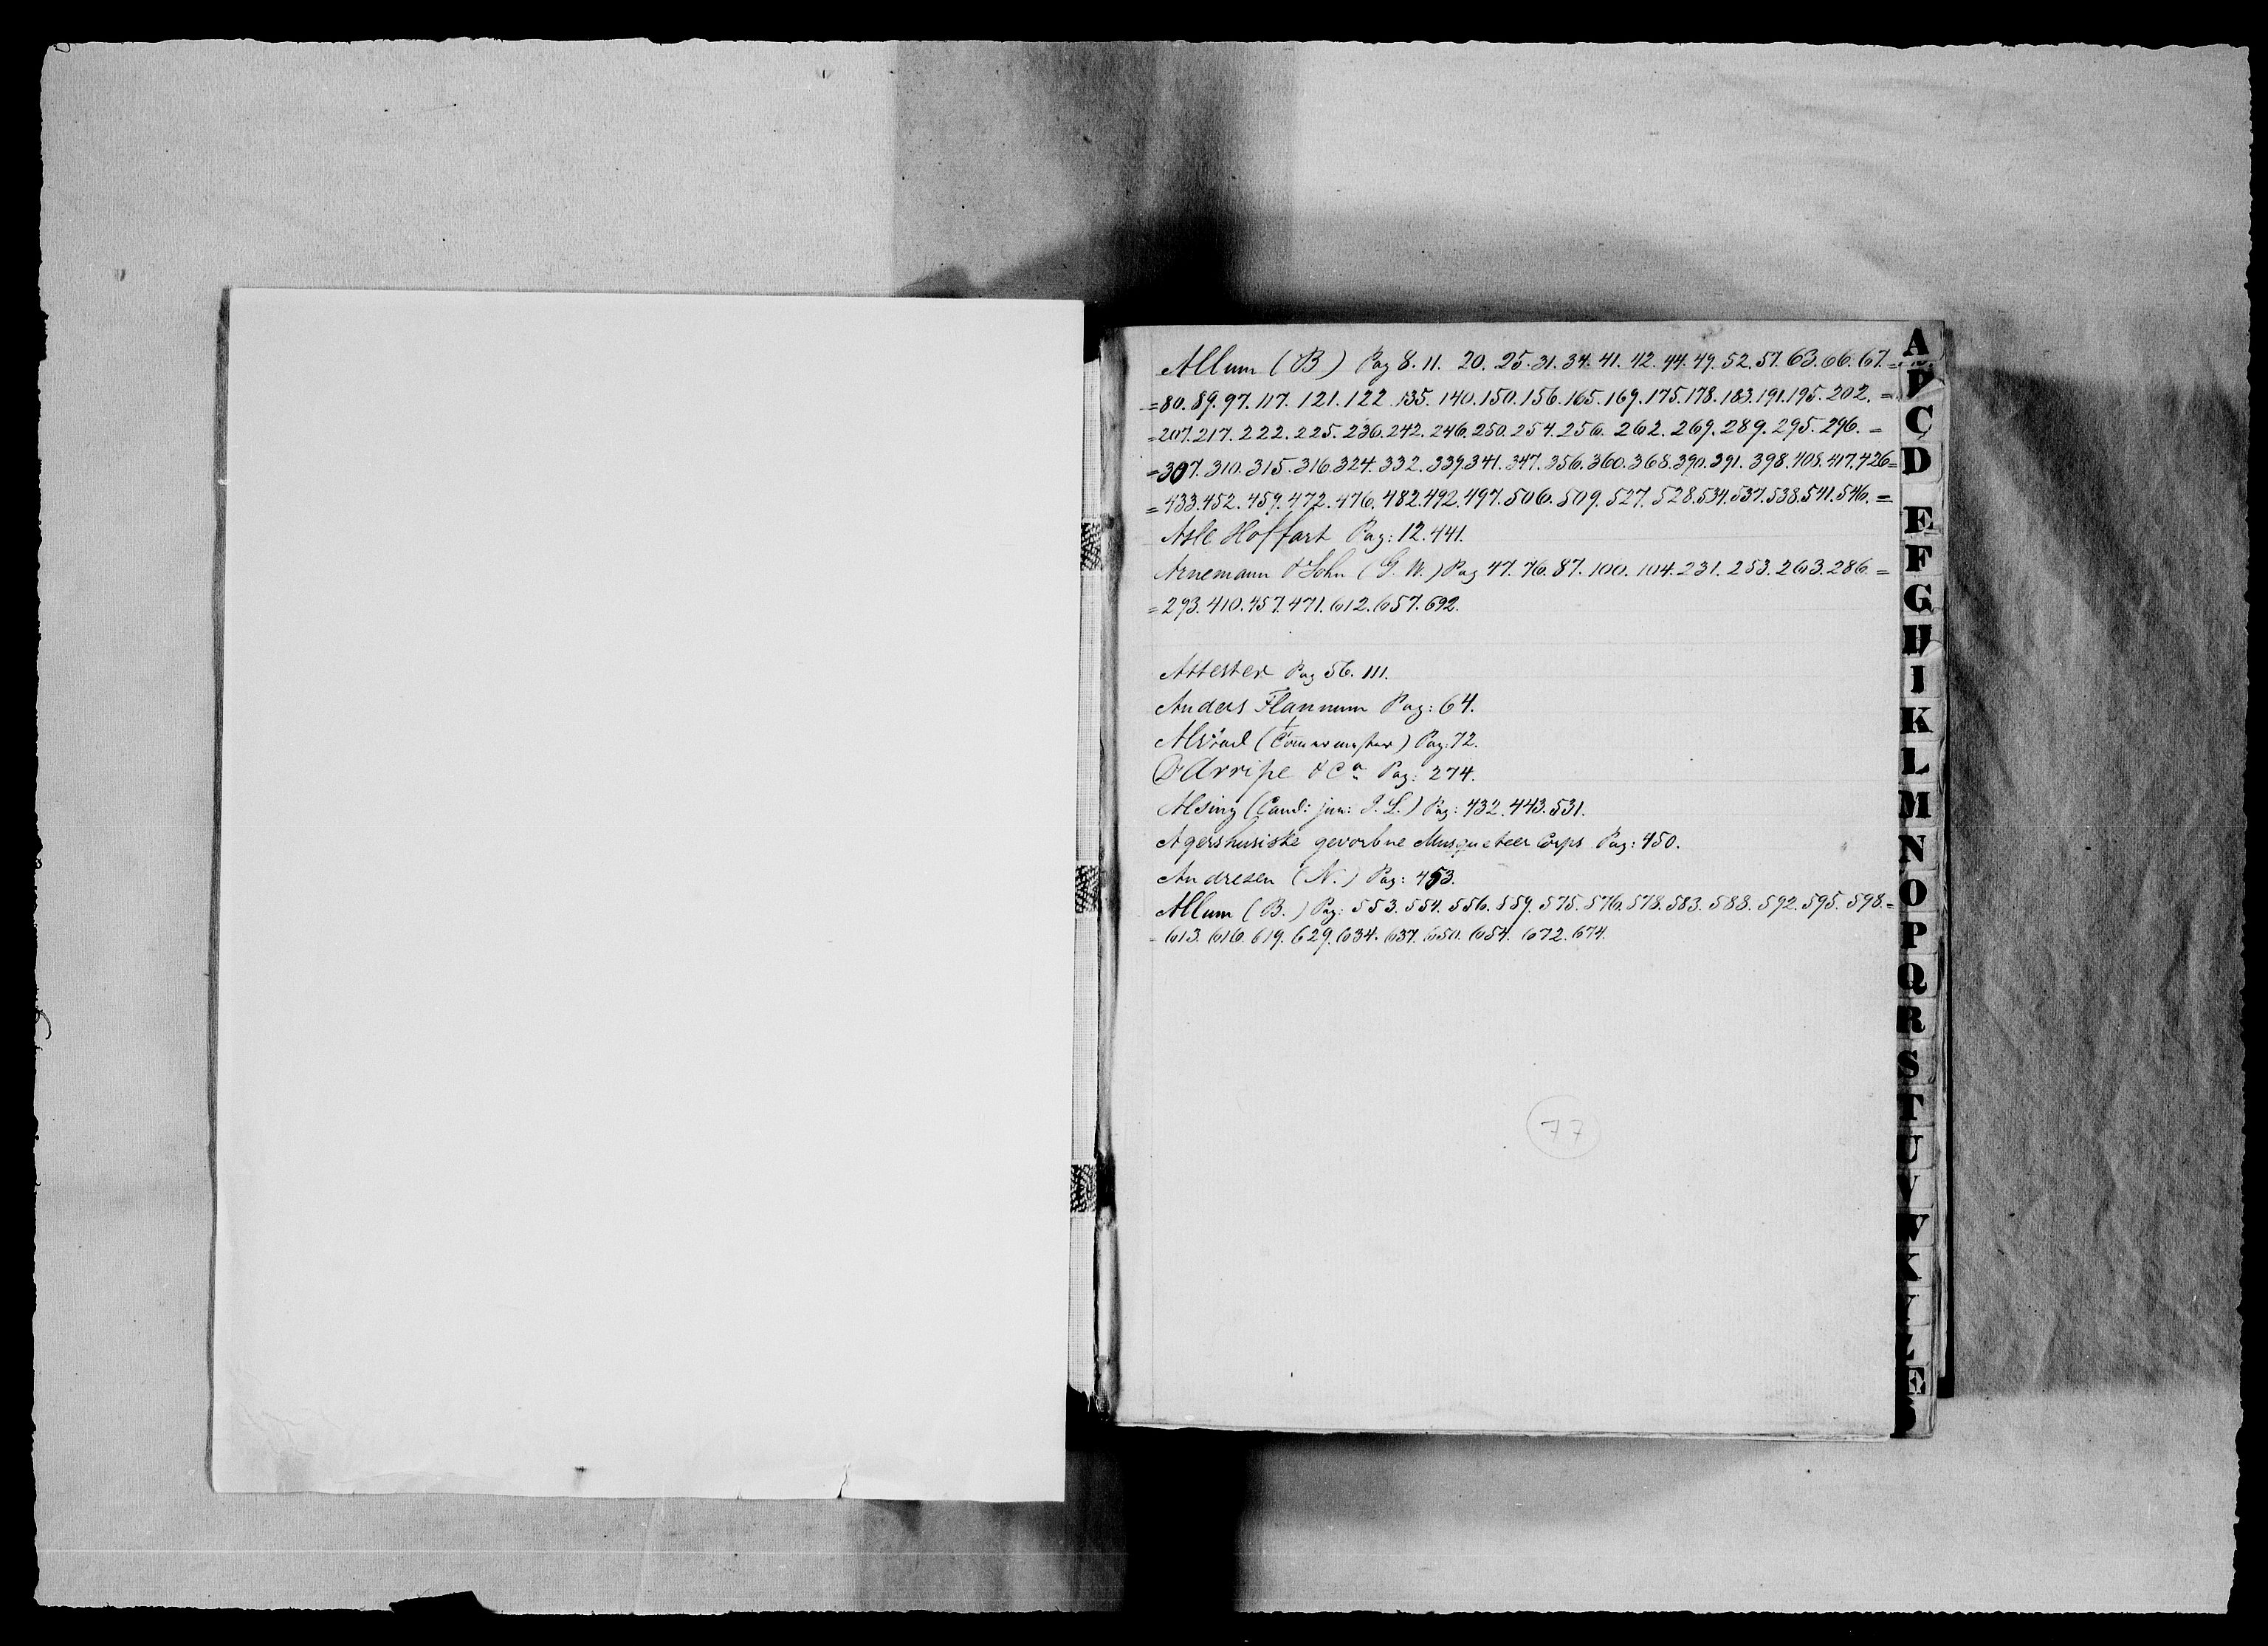 Allum (B) Pag 8. 11. 20. 25. 31. 34. 41. 42. 44. 49. 52. 57. 63. 66. 67. =
= 80. 89. 97. 117. 121. 122. 135. 140. 150. 156. 165. 169. 175. 178. 183. 191. 195. 202. =
= 207. 217. 222. 225. 236. 242. 246. 250. 254. 256. 262. 269. 289. 295. 296. =
= 307. 310. 315. 316. 324. 332. 339. 341. 347. 356. 360. 368. 390. 391. 398. 405. 417. 426 =
= 433. 452. 459. 472. 476. 482. 492. 497. 506. 509. 527. 528. 534. 537. 538. 541. 546. =
Asle Hoffart Pag: 12. 441.
Arnemann & Sohn (G. W.) Pag 47. 76. 87. 100. 104. 231. 253. 263. 286. =
= 293. 410. 457. 471. 612. 657. 692.
Attester Pag 56. 111.
Anders Flannum Pag: 64.
Pag: 72.
D'Arripe & Co Pag: 274.
Alsing (Cand: jur: J. L.) Pag: 432. 443. 531.
Agershusiske gevorbne Musqueteer Corps Pag: 450.
Andresen (N.) Pag: 453.
Allum (B.) Pag: 553. 554. 556. 559. 575. 576. 578. 583. 588. 592. 595. 598. =
= 613. 616. 619. 629. 634. 637. 650. 654. 672. 674.
77
A
C
D
E
F
G
H
I
K
L
M
N
O
P
Q
R
S
T
U
V